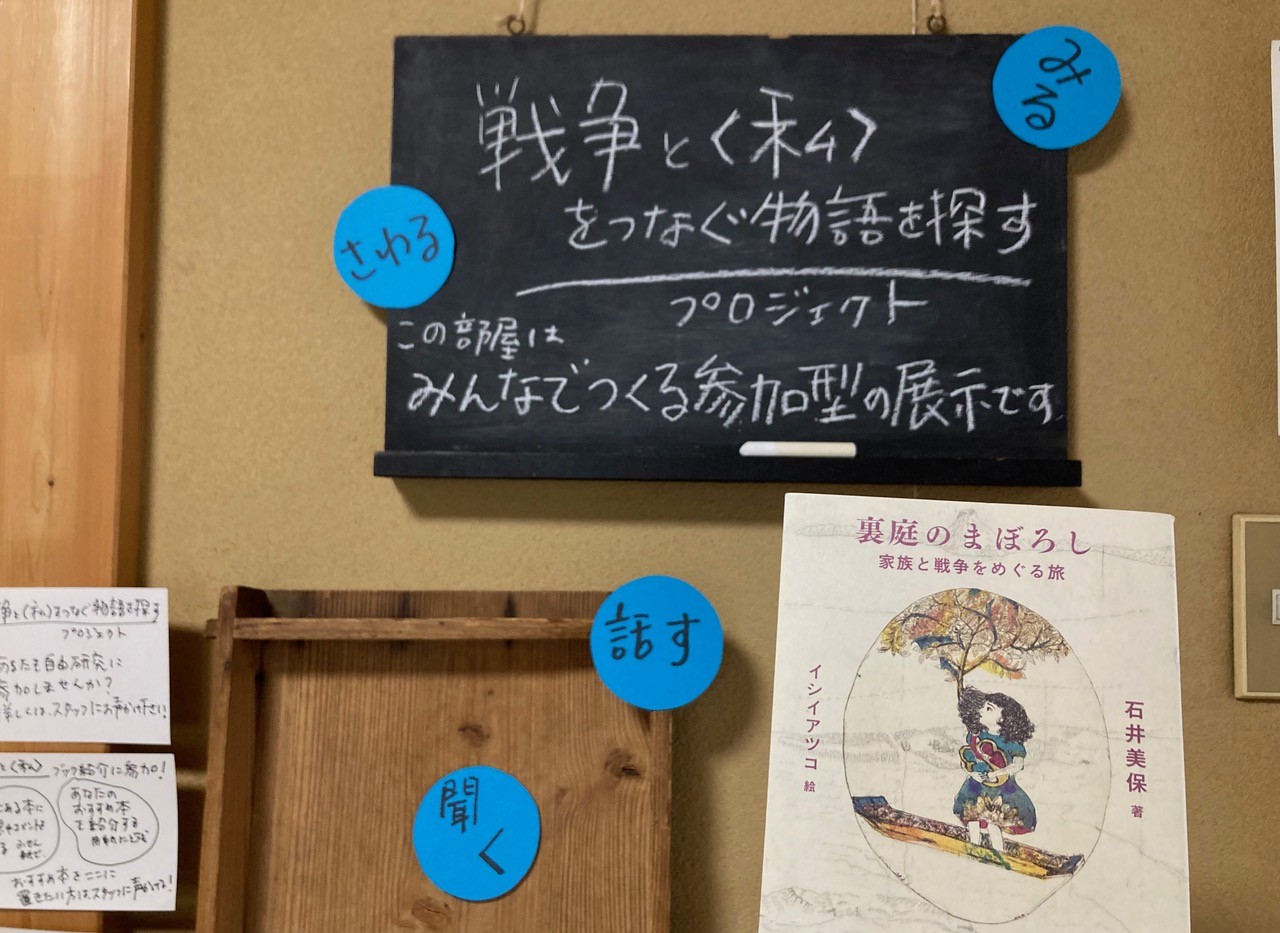 戦争と〈私〉
をつなぐ物語を探す
プロジェクト
この部屋は
みんなでつくる参加型の展示です
みる
さわる
話す
聞く
裏庭のまぼろし
家族と戦争をめぐる旅
イシイアツコ 絵
石井美保 著
争と〈私〉をつなぐ物語を探す
プロジェクト
あなたも自由研究に
参加しませんか?
詳しくは、スタッフにお声かけ下さい!
と〈私〉 ブック紹介に参加!
ある本に
あなたの
おすすめ本
を紹介する
おすすめ本をここに
置きたい方はスタッフに声かけて!